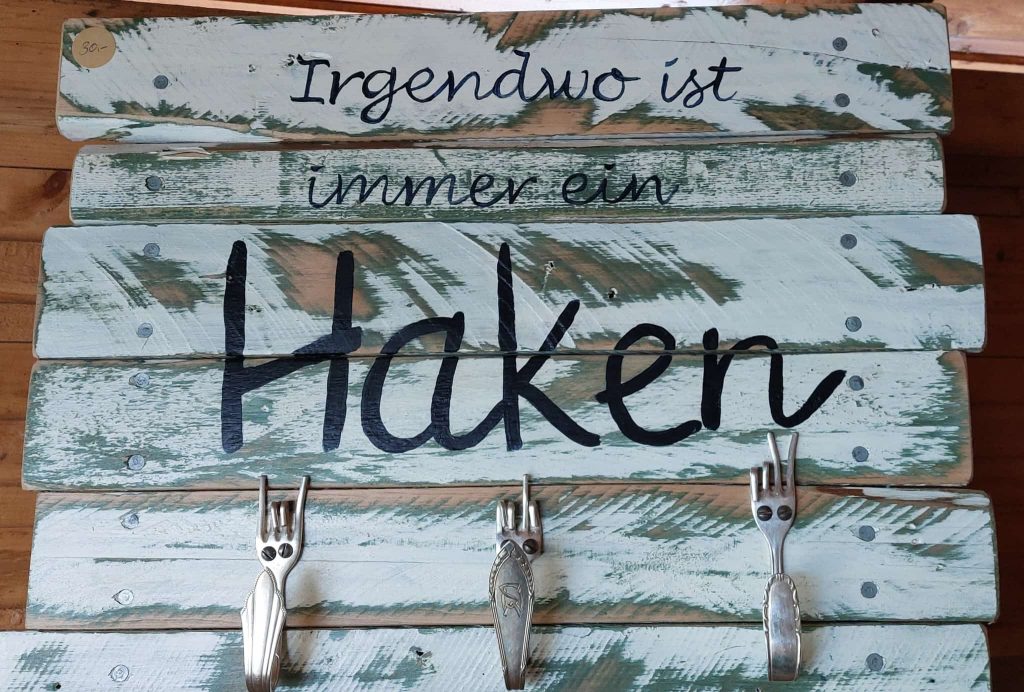 30.-
Irgendwo ist
immer ein
Haken